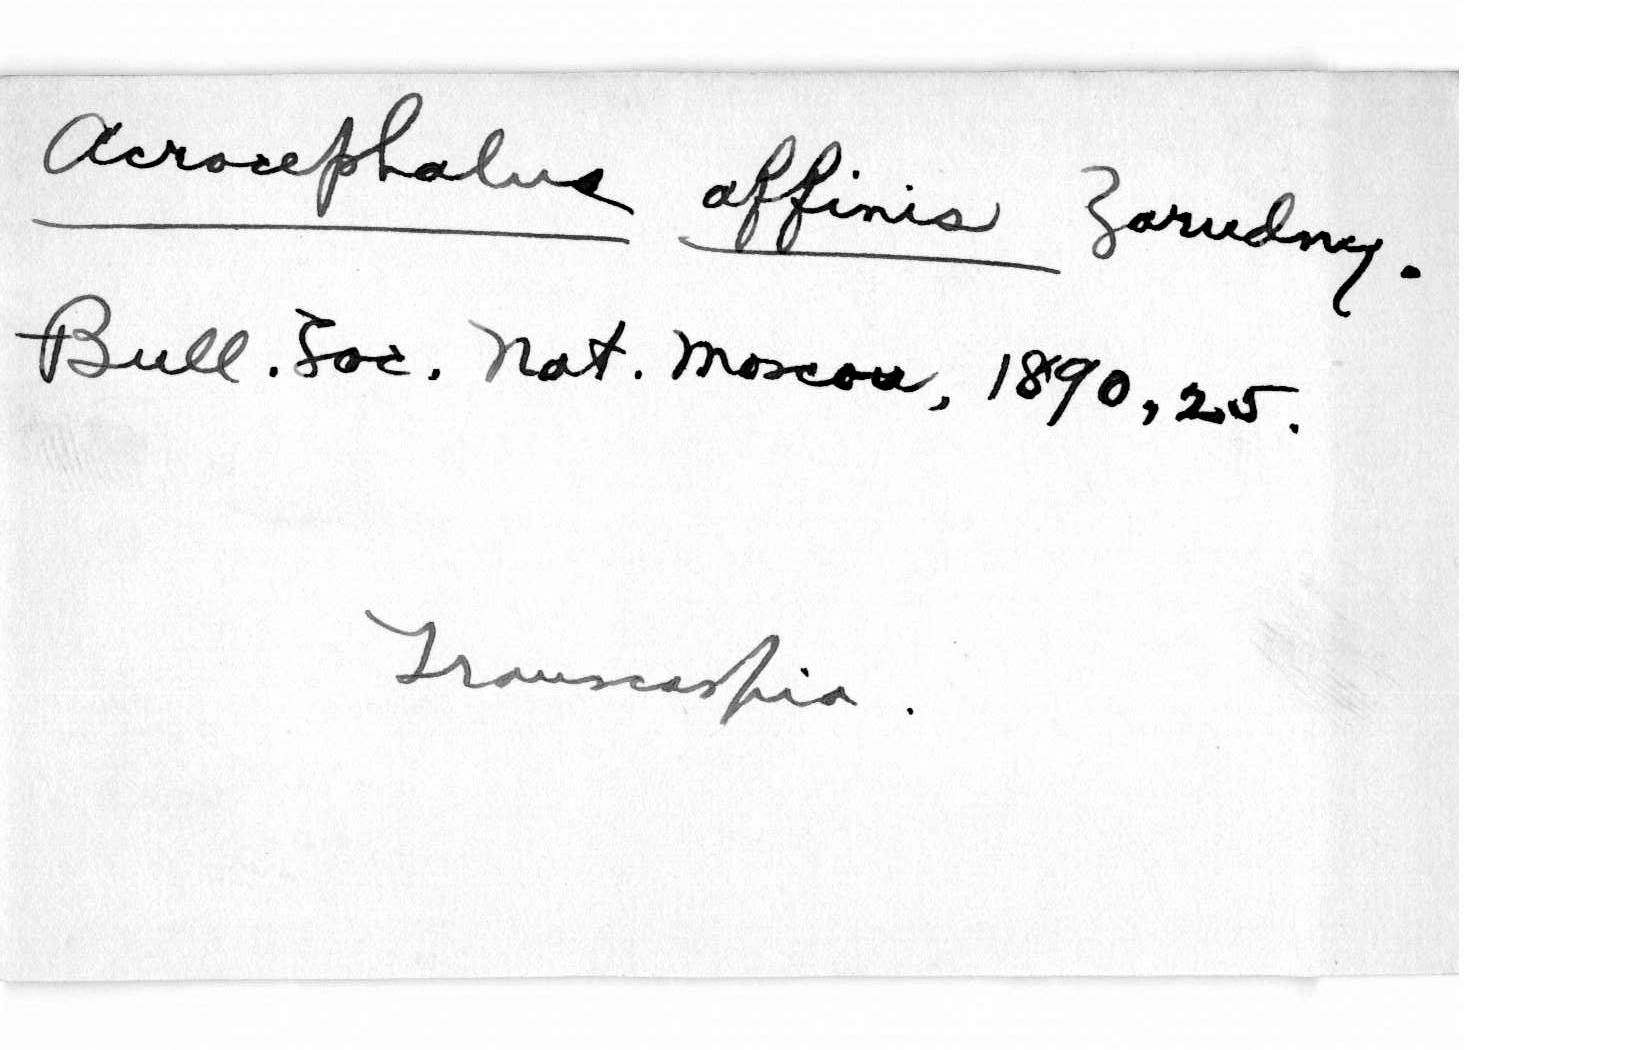 Acrocephalus affinis Zarudny.
Bull. Soc. Nat. Moscou, 1890, 25.
Transcaspia.